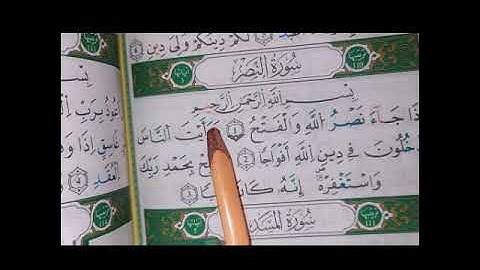 لَكُمْ دِينُكُمْ وَلِيَ دِينِ
سُورَةُ النَّصْرِ
بِسْمِ اللهِ الرَّحْمٰنِ الرَّحِيمِ
ذَا جَاءَ نَصْرُ اللهِ وَالْفَتْحُ ١ النَّاسَ
خُلُونَ فِي دِينِ اللهِ اَفْوَاجًا ٢ بِحَمْدِ رَبِّكَ
وَاسْتَغْفِرْهُ اِنَّهُ كَانَ
سُورَةُ الْمَسَدِ
بِسْمِ
عُوذُ بِرَبِّ
غَاسِقٍ اِذَا
الْعُقَدِ ٤